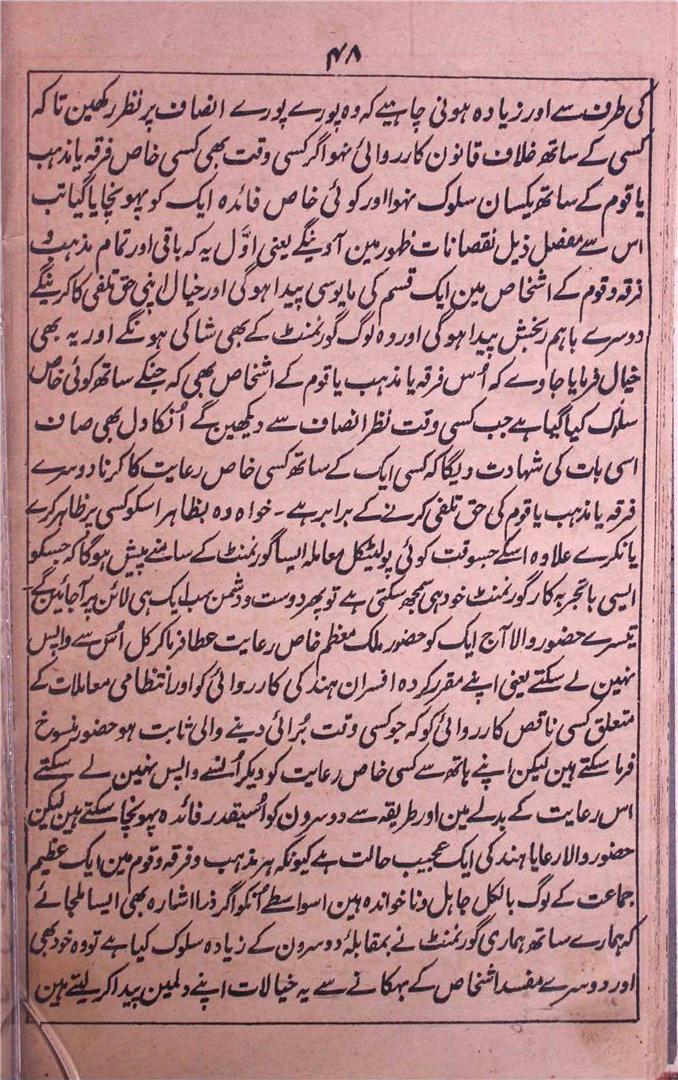 ۴۸
کی طرف سے اور زیادہ ہونی چاہیے کہ وہ پورے پورے انصاف پر نظر رکھین تا کہ
کسی کے ساتھ خلاف قانون کارروائی نہو اگر کسی وقت بھی کسی خاص فرقہ یا مذہب
یا قوم کے ساتھ یکسان سلوک نہوا اور کوئی خاص فائدہ ایک کو پہونچایا گیا تب
اس سے مفصل ذیل نقصانات ظہور مین آوینگے یعنی اوّل یہ کہ باقی اور تمام مذہب و
فرقہ و قوم کے اشخاص مین ایک قسم کی مایوسی پیدا ہوگی اور خیال اپنی حق تلفی کا کرینگے
دوسرے باہم رنجش پیدا ہوگی اور وہ لوگ گورنمنٹ کے بھی شاکی ہونگے اور یہ بھی
خیال فرمایا جاوے کہ اُس فرقہ یا مذہب یا قوم کے اشخاص بھی کہ جنکے ساتھ کوئی خاص
سلوک کیا گیا ہے جب کسی وقت نظر انصاف سے دیکھین گے اُنکا دل بھی صاف
اسی بات کی شہادت دیگا کہ کسی ایک کے ساتھ کسی خاص رعایت کا کرنا دوسرے
فرقہ یا مذہب یا قوم کی حق تلفی کرنے کے برابر ہے ۔ خواہ وہ بظاہر اسکو کسی پر ظاہر کرے
یا نکرے علاوہ اسکے جسوقت کوئی پولیٹکل معاملہ ایسا گورنمنٹ کے سامنے پیش ہوگا کہ جسکو
ایسی باتجربہ کار گورنمنٹ خود ہی سمجھ سکتی ہے تو پھر دوست و دشمن سب ایک ہی لائن پر آجائین گے
تیسرے حضور والا آج ایک کو حضور ملک معظم خاص رعایت عطا فرما کر کل اُس سے واپس
نہین لے سکتے یعنی اپنے مقرر کردہ افسران ہند کی کارروائی کو اور انتظامی معاملات کے
متعلق کسی ناقص کارروائی کو کہ جو کسی وقت بُرائی دینے والی ثابت ہو حضور منسوخ
فرما سکتے ہین لیکن اپنے ہاتھ سے کسی خاص رعایت کو دیکر اُسنے واپس نہین لے سکتے
اس رعایت کے بدلے مین اور طریقہ سے دوسرون کو اُسیقدر فائدہ پہونچا سکتے ہین لیکن
حضور والا رعایا ہند کی ایک عجیب حالت ہے کیونکہ ہر مذہب و فرقہ و قوم مین ایک عظیم
جماعت کے لوگ بالکل جاہل و ناخواندہ ہین اسواسطے اُنکو اگر ذرا اشارہ بھی ایسا ملجائے
کہ ہمارے ساتھ ہماری گورنمنٹ نے بمقابلۂ دوسرون کے زیادہ سلوک کیا ہے تو وہ خود بھی
اور دوسرے مفسد اشخاص کے بہکانے سے یہ خیالات اپنے دلمین پیدا کر لیتے ہین